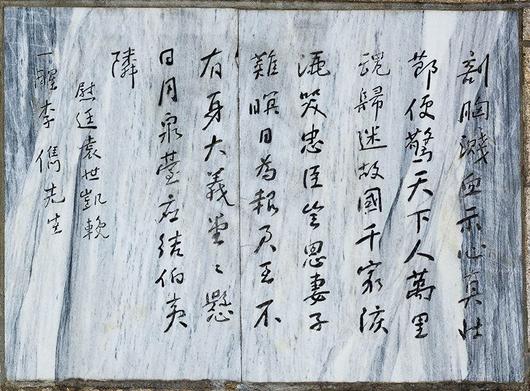 剖胸濺血示心真壯
節便驚天下人萬里
魂歸迷故國千家淚
灑哭忠臣豈思妻子
難瞑目為報君王不
有身大義堂〻懸
日月泉臺應結伯夷
隣
慰廷袁世凱輓
一醒李儁先生